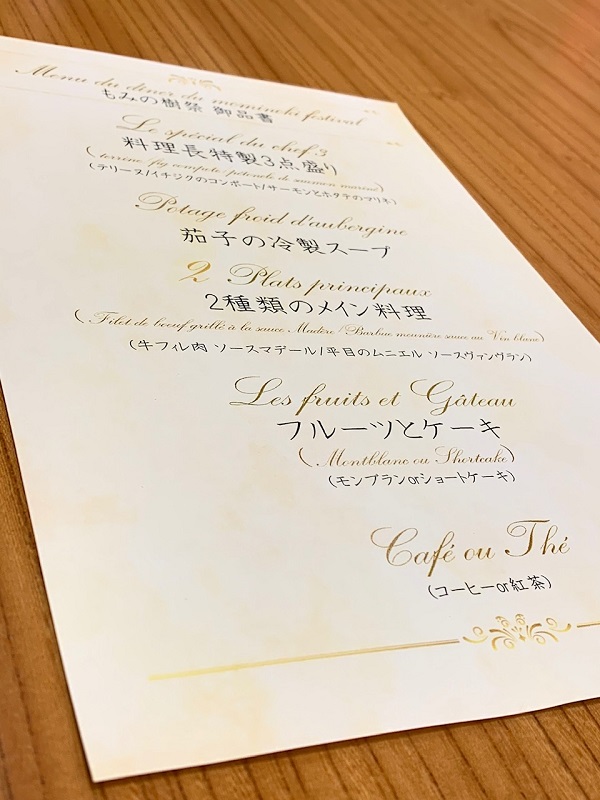 Menu du dîner du mominoki festival
もみの樹祭 御品書
Le spécial du chef 3
料理長特製3点盛り
(terrine/fig compote/pétoncle de saumon mariné)
(テリーヌ/イチジクのコンポート/サーモンとホタテのマリネ)
Potage froid d'aubergine
茄子の冷製スープ
2 Plats principaux
2種類のメイン料理
(Filet de boeuf grillé à la sauce Madère/Barbue meunière sauce au Vin blanc)
(牛フィレ肉 ソースマデール/平目のムニエル ソースヴァンヴラン)
Les fruits et Gâteau
フルーツとケーキ
(Montblanc ou Shortcake)
(モンブランorショートケーキ)
Café ou Thé
(コーヒーor紅茶)